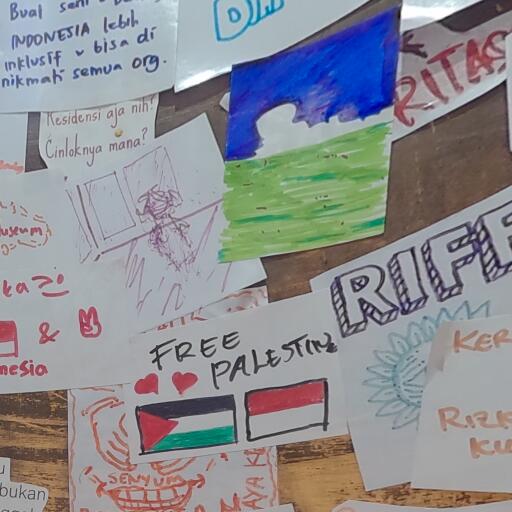 Buat seni
INDONESIA lebih
inklusif & bisa di
nikmati semua org.
RITAS
Residensi aja nih?
Cinloknya mana?
useum
&
nesia
RIFF
FREE
PALESTINE
KER
RIZK
KU
SENYUM
bukan